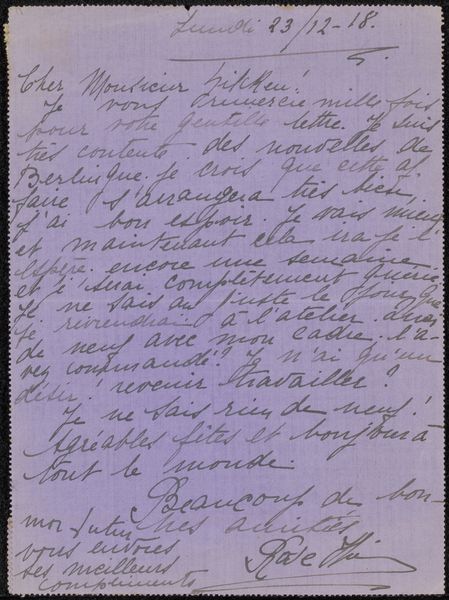 Lundi 23/12-18.
Cher Monsieur
Je vous remercie mille fois
pour votre gentille lettre. Je suis
très contente des nouvelles de
Berlin que je crois que cette af
faire s'arrangera très bien,
j'ai bon espoir. Je vais mieux
et maintenant cela ira je l'
éspère encore une semaine
et j' serai complètement guérie
Je ne sais au juste le jour que
je reviendrai à l'atelier.
de neuf avec mon cadre. l'a-
vez commandé? Je n'ai qu'un
désir! revenir travailler?
Je ne sais rien de neuf!
Agréables fêtes et bonjour à
tout le monde.
Beaucoup de bon-
nes amitiés
mon futur
vous envoies
ses meilleurs
compliments